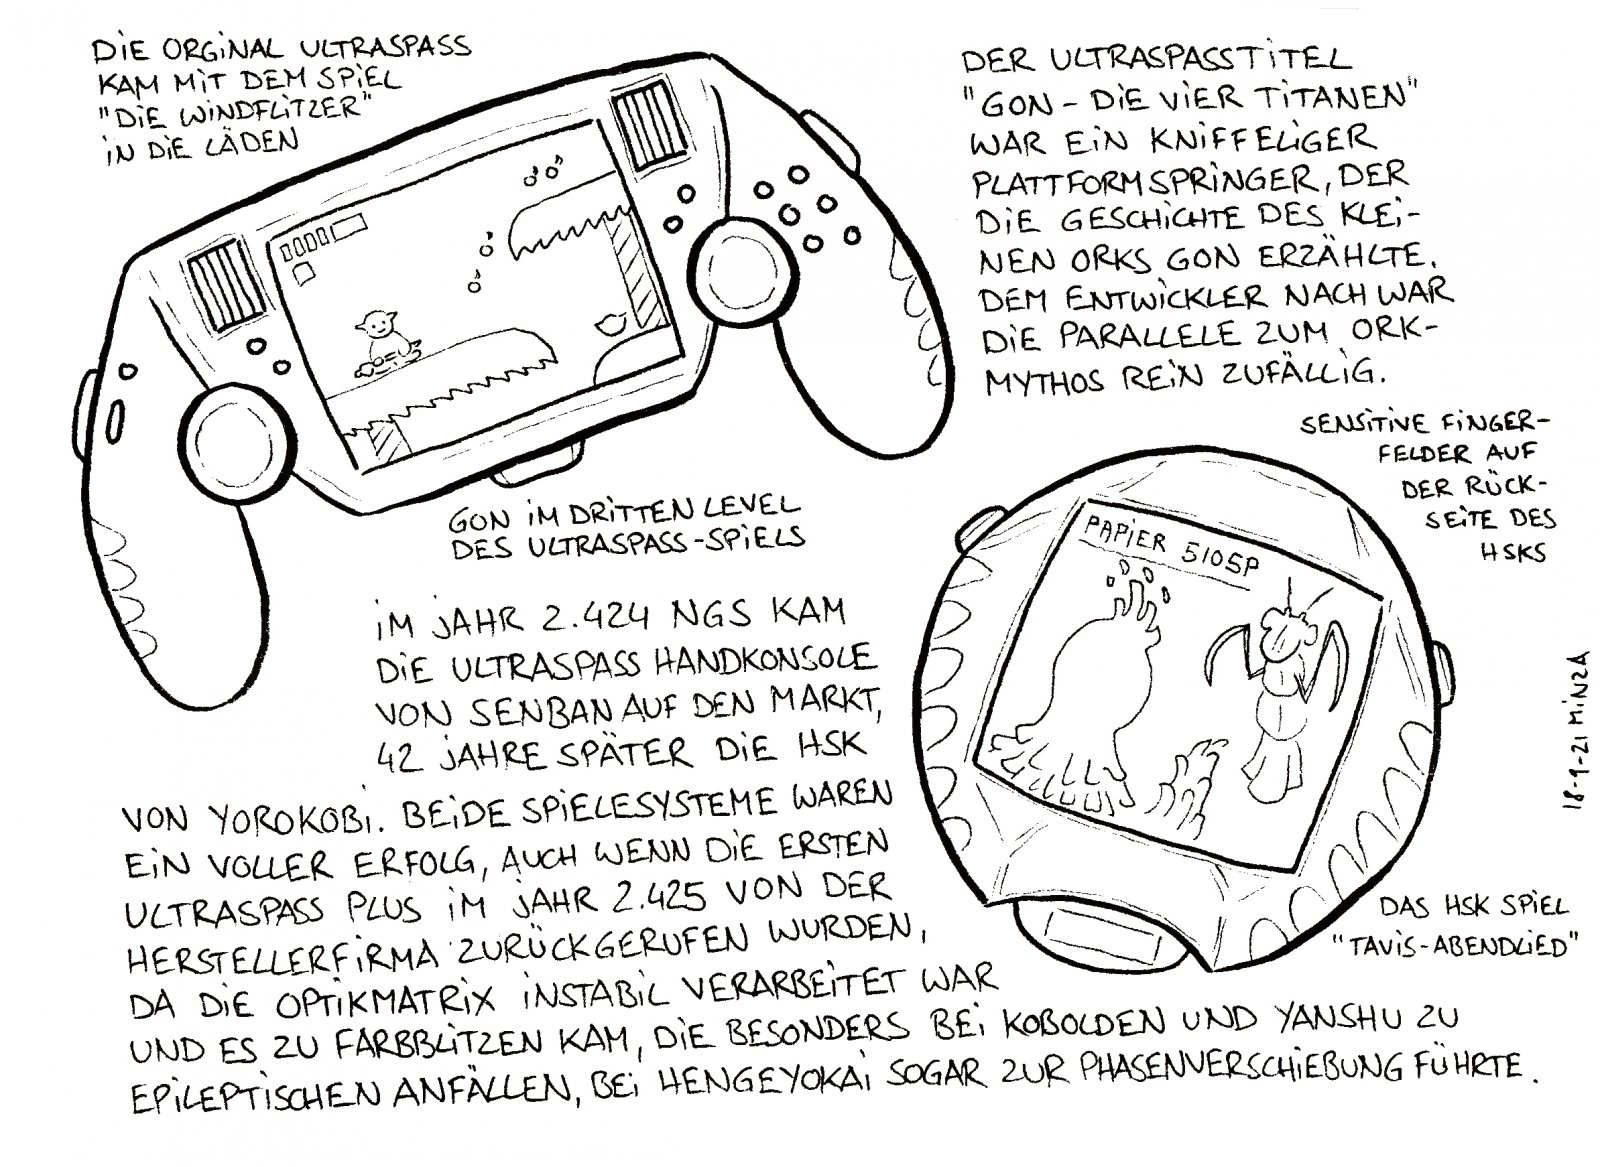 DIE ORGINAL ULTRASPASS
KAM MIT DEM SPIEL
"DIE WINDFLITZER"
IN DIE LÄDEN
DER ULTRASPASSTITEL
"GON - DIE VIER TITANEN"
WAR EIN KNIFFELIGER
PLATTFORMSPRINGER, DER
DIE GESCHICHTE DES KLEI-
NEN ORKS GON ERZÄHLTE.
DEM ENTWICKLER NACH WAR
DIE PARALLELE ZUM ORK-
MYTHOS REIN ZUFÄLLIG.
SENSITIVE FINGER-
FELDER AUF
DER RÜCK-
SEITE DES
HSKS
GON IM DRITTEN LEVEL
DES ULTRASPASS-SPIELS
PAPIER 510SP
IM JAHR 2.424 NGS KAM
DIE ULTRASPASS HANDKONSOLE
VON SENBAN AUF DEN MARKT,
42 JAHRE SPÄTER DIE HSK
VON YOROKOBI. BEIDE SPIELESYSTEME WAREN
EIN VOLLER ERFOLG, AUCH WENN DIE ERSTEN
ULTRASPASS PLUS IM JAHR 2.425 VON DER
HERSTELLERFIRMA ZURÜCKGERUFEN WURDEN,
DA DIE OPTIKMATRIX INSTABIL VERARBEITET WAR
UND ES ZU FARBBLITZEN KAM, DIE BESONDERS BEI KOBOLDEN UND YANSHU ZU
EPILEPTISCHEN ANFÄLLEN, BEI HENGEYOKAI SOGAR ZUR PHASENVERSCHIEBUNG FÜHRTE.
DAS HSK SPIEL
"TAVIS-ABENDLIED"
18-9-21 MINZA